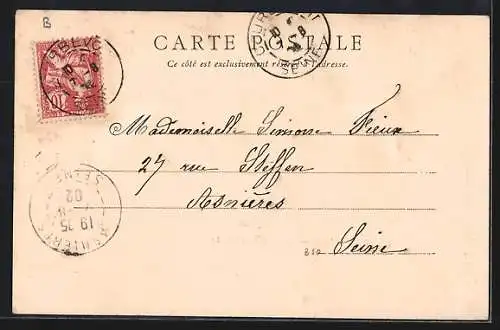 B
CARTE POSTALE
Ce côté est exclusivement réservé à l'adresse.
COUR
SEINE
10
Mademoiselle Simone Fieux
27 rue Steffen
Asnières
Seine
ASNIERES
SEINE
19 25
02